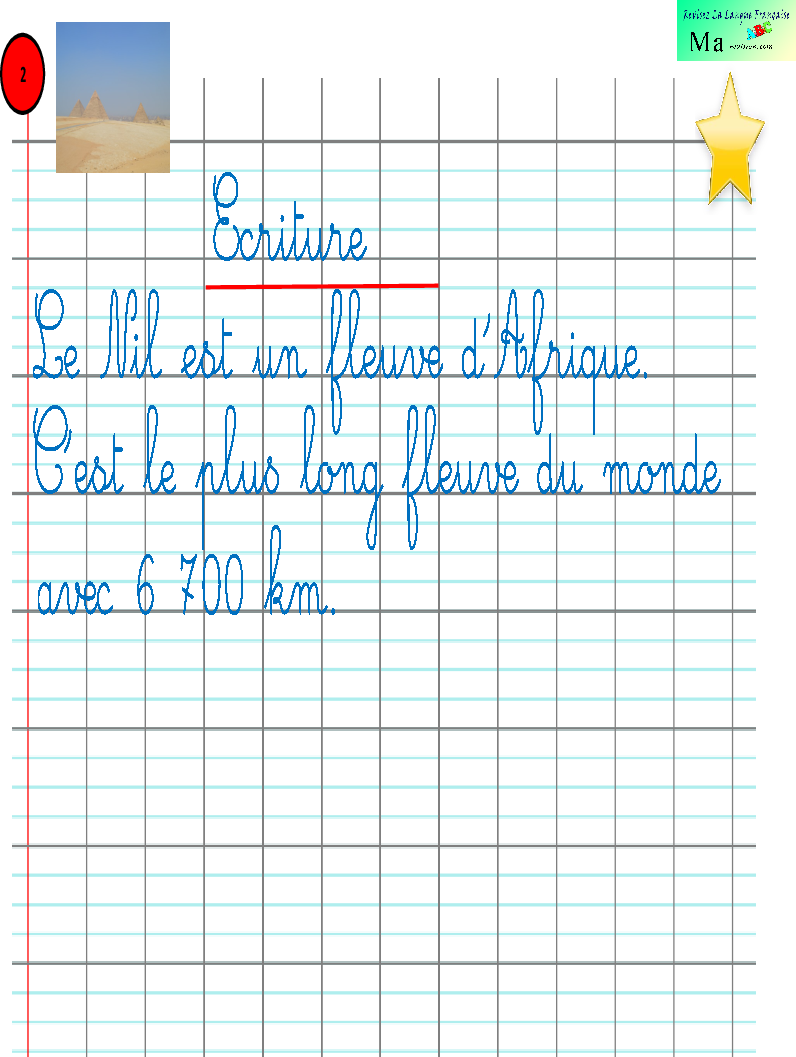 Revisez La Langue Française
Ma
2
Ecriture
Le Nil est un fleuve d'Afrique.
C'est le plus long fleuve du monde
avec 6 700 km.